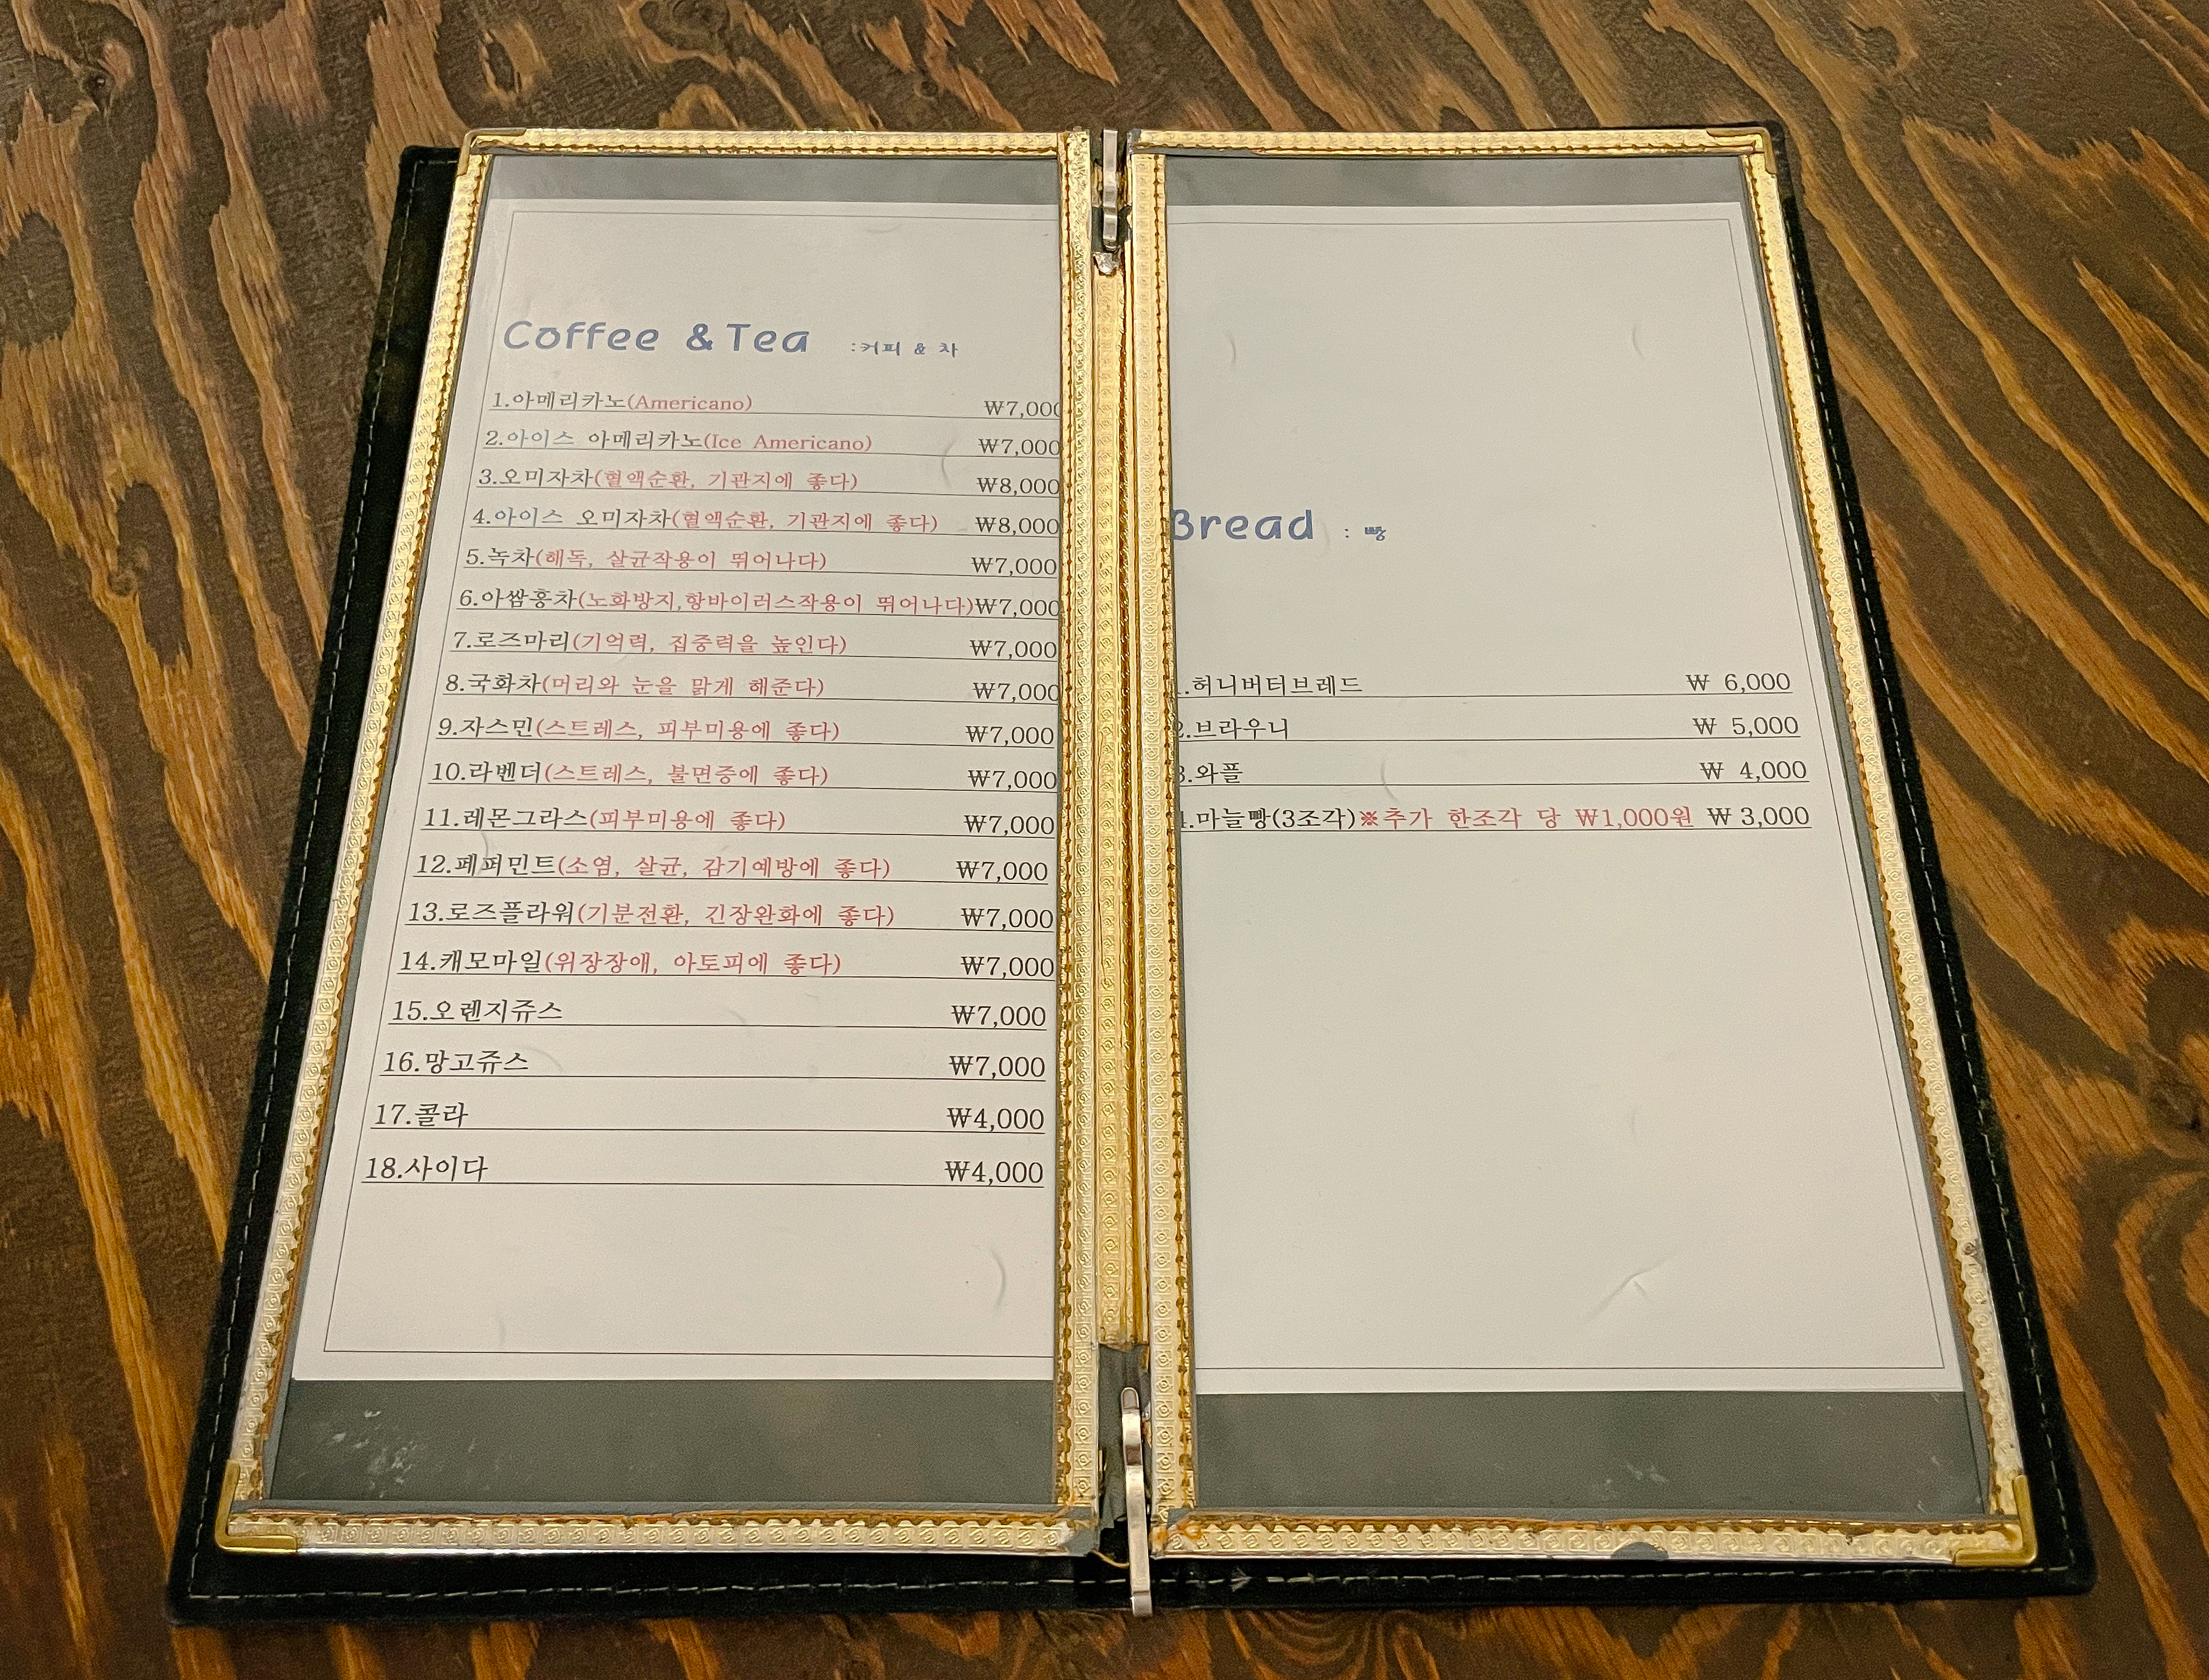 Coffee & Tea :커피 & 차
1.아메리카노(Americano) ₩7,000
2.아이스 아메리카노(Ice Americano) ₩7,000
3.오미자차(혈액순환, 기관지에 좋다) ₩8,000
4.아이스 오미자차(혈액순환, 기관지에 좋다) ₩8,000
5.녹차(해독, 살균작용이 뛰어나다) ₩7,000
6.아쌈홍차(노화방지,항바이러스작용이 뛰어나다)₩7,000
7.로즈마리(기억력, 집중력을 높인다) ₩7,000
8.국화차(머리와 눈을 맑게 해준다) ₩7,000
9.자스민(스트레스, 피부미용에 좋다) ₩7,000
10.라벤더(스트레스, 불면증에 좋다) ₩7,000
11.레몬그라스(피부미용에 좋다) ₩7,000
12.페퍼민트(소염, 살균, 감기예방에 좋다) ₩7,000
13.로즈플라워(기분전환, 긴장완화에 좋다) ₩7,000
14.캐모마일(위장장애, 아토피에 좋다) ₩7,000
15.오렌지쥬스 ₩7,000
16.망고쥬스 ₩7,000
17.콜라 ₩4,000
18.사이다 ₩4,000
Bread : 빵
1.허니버터브레드 ₩ 6,000
2.브라우니 ₩ 5,000
3.와플 ₩ 4,000
4.마늘빵(3조각)※추가 한조각 당 ₩1,000원 ₩ 3,000